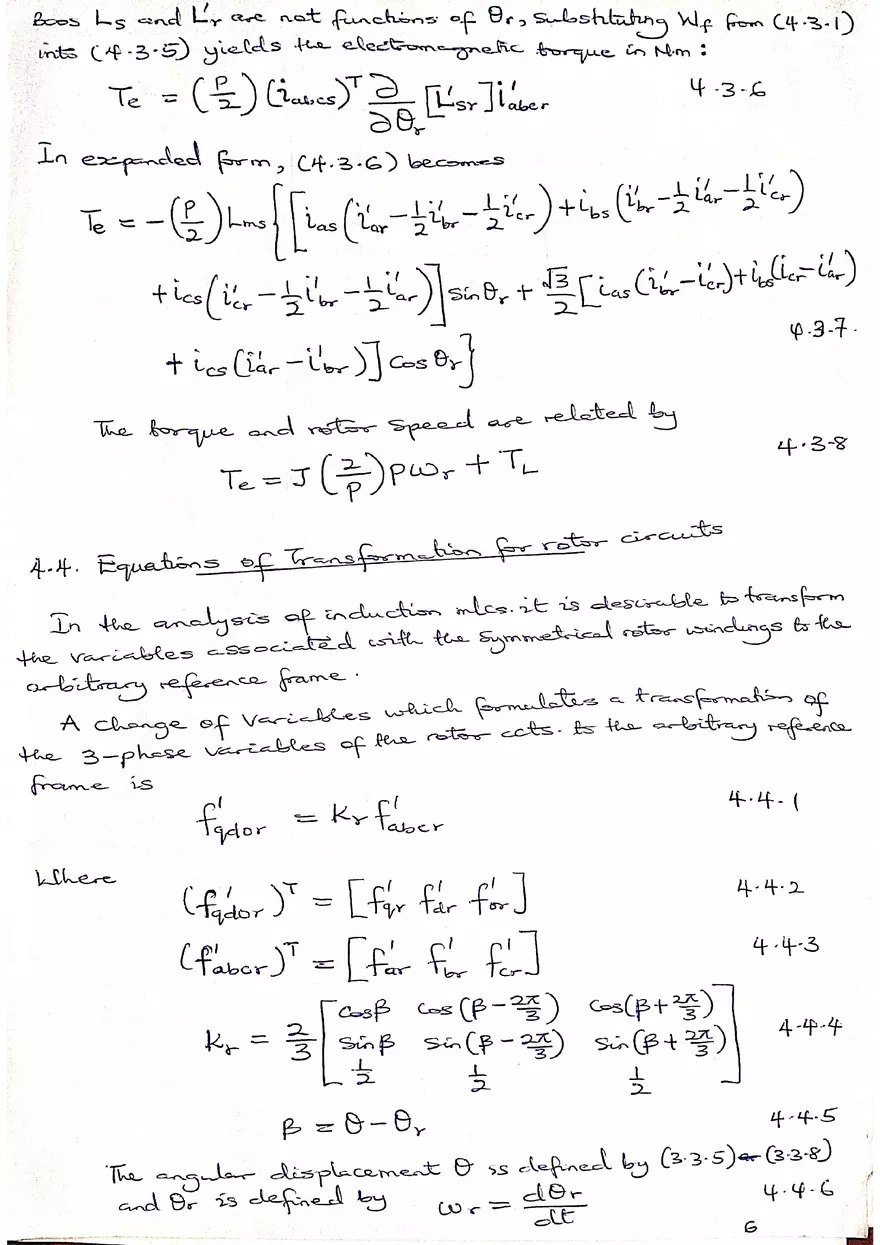 Bcos Ls and L'r are not functions of θr, substituting Wf from (4.3.1)
into (4.3.5) yields the electromagnetic torque in N.m :
Te = (P/2) (iabcs)^T ∂/∂θr [L'sr] i'abcr 4.3-6
In expanded form, (4.3.6) becomes
Te = -(P/2) Lms { [ ias (i'ar - 1/2 i'br - 1/2 i'cr) + ibs (i'br - 1/2 i'ar - 1/2 i'cr)
+ ics (i'cr - 1/2 i'br - 1/2 i'ar) ] sin θr + √3/2 [ ias (i'br - i'cr) + ibs (i'cr - i'ar)
4.3-7.
+ ics (i'ar - i'br) ] cos θr }
The torque and rotor speed are related by
4.3-8
Te = J (2/P) pωr + TL
4.4. Equations of Transformation for rotor circuits
In the analysis of induction m/cs. it is desirable to transform
the variables associated with the symmetrical rotor windings to the
arbitrary reference frame.
A change of variables which formulates a transformation of
the 3-phase variables of the rotor ccts. to the arbitrary reference
frame is
f'qdor = Kr f'abcr 4.4-1
Where
(f'qdor)^T = [f'qr f'dr f'or] 4.4.2
(f'abcr)^T = [f'ar f'br f'cr] 4.4-3
Kr = 2/3 [ cosβ cos(β - 2π/3) cos(β + 2π/3)
sinβ sin(β - 2π/3) sin(β + 2π/3) 4-4-4
1/2 1/2 1/2 ]
β = θ - θr 4-4.5
The angular displacement θ is defined by (3.3.5) (3.3-8)
and θr is defined by ωr = dθr/dt 4.4-6
6